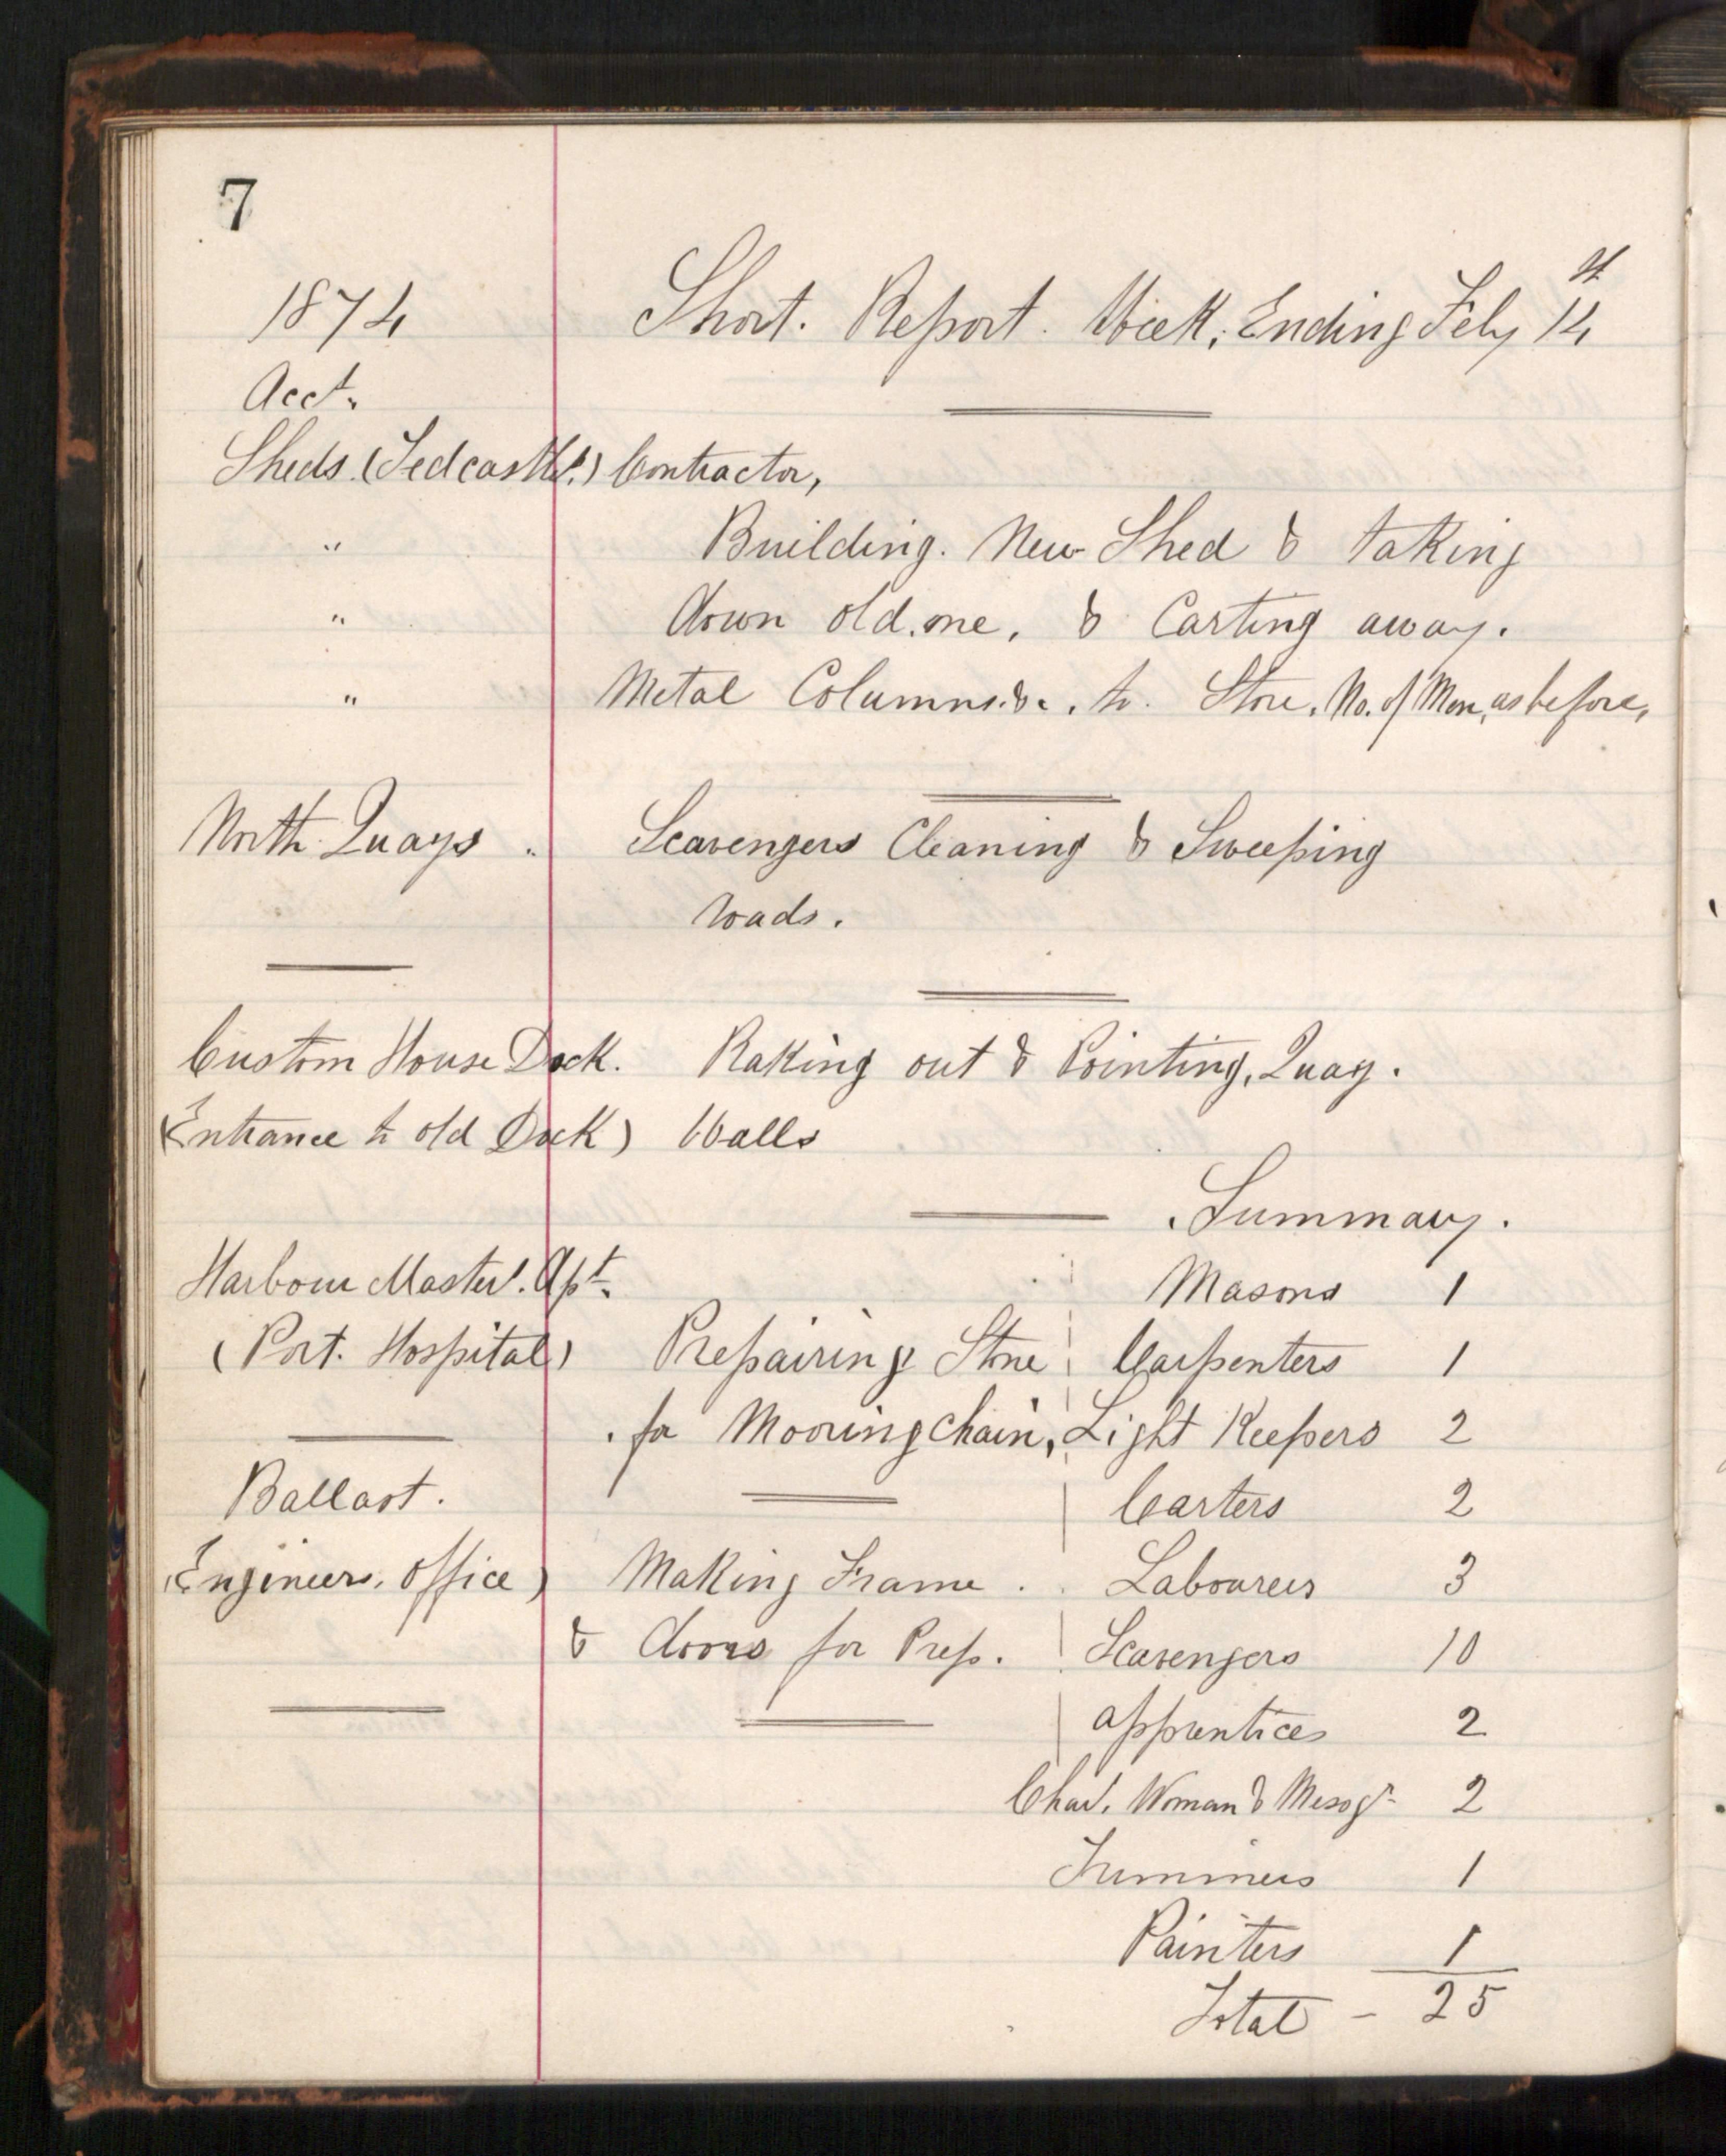 7
1874 Short. Report. Week, Ending Feby 14th
Acct.
Sheds. (Tedcastle.) Contractor,
" Building. New Shed & taking
" down old. one, & Carting away.
" Metal Columns. &c. to. Store. No. of Men, as before,
North Quays " Scavengers Cleaning & Sweeping
roads.
Custom House Dock. Raking out & Pointing, Quay.
(Entrance to old Dock) Walls
Summary.
Harbour Master. Apt. Masons 1
(Port. Hospital) Prepairing Stone Carpenters 1
for Mooring chain, Light Keepers 2
Ballast. Carters 2
(Engineers. Office) Making Frame . Labourers 3
& doors for Press. Scavengers 10
apprentices 2
Char. Woman & Messgr. 2
Trimmers 1
Painters 1
Total - 25